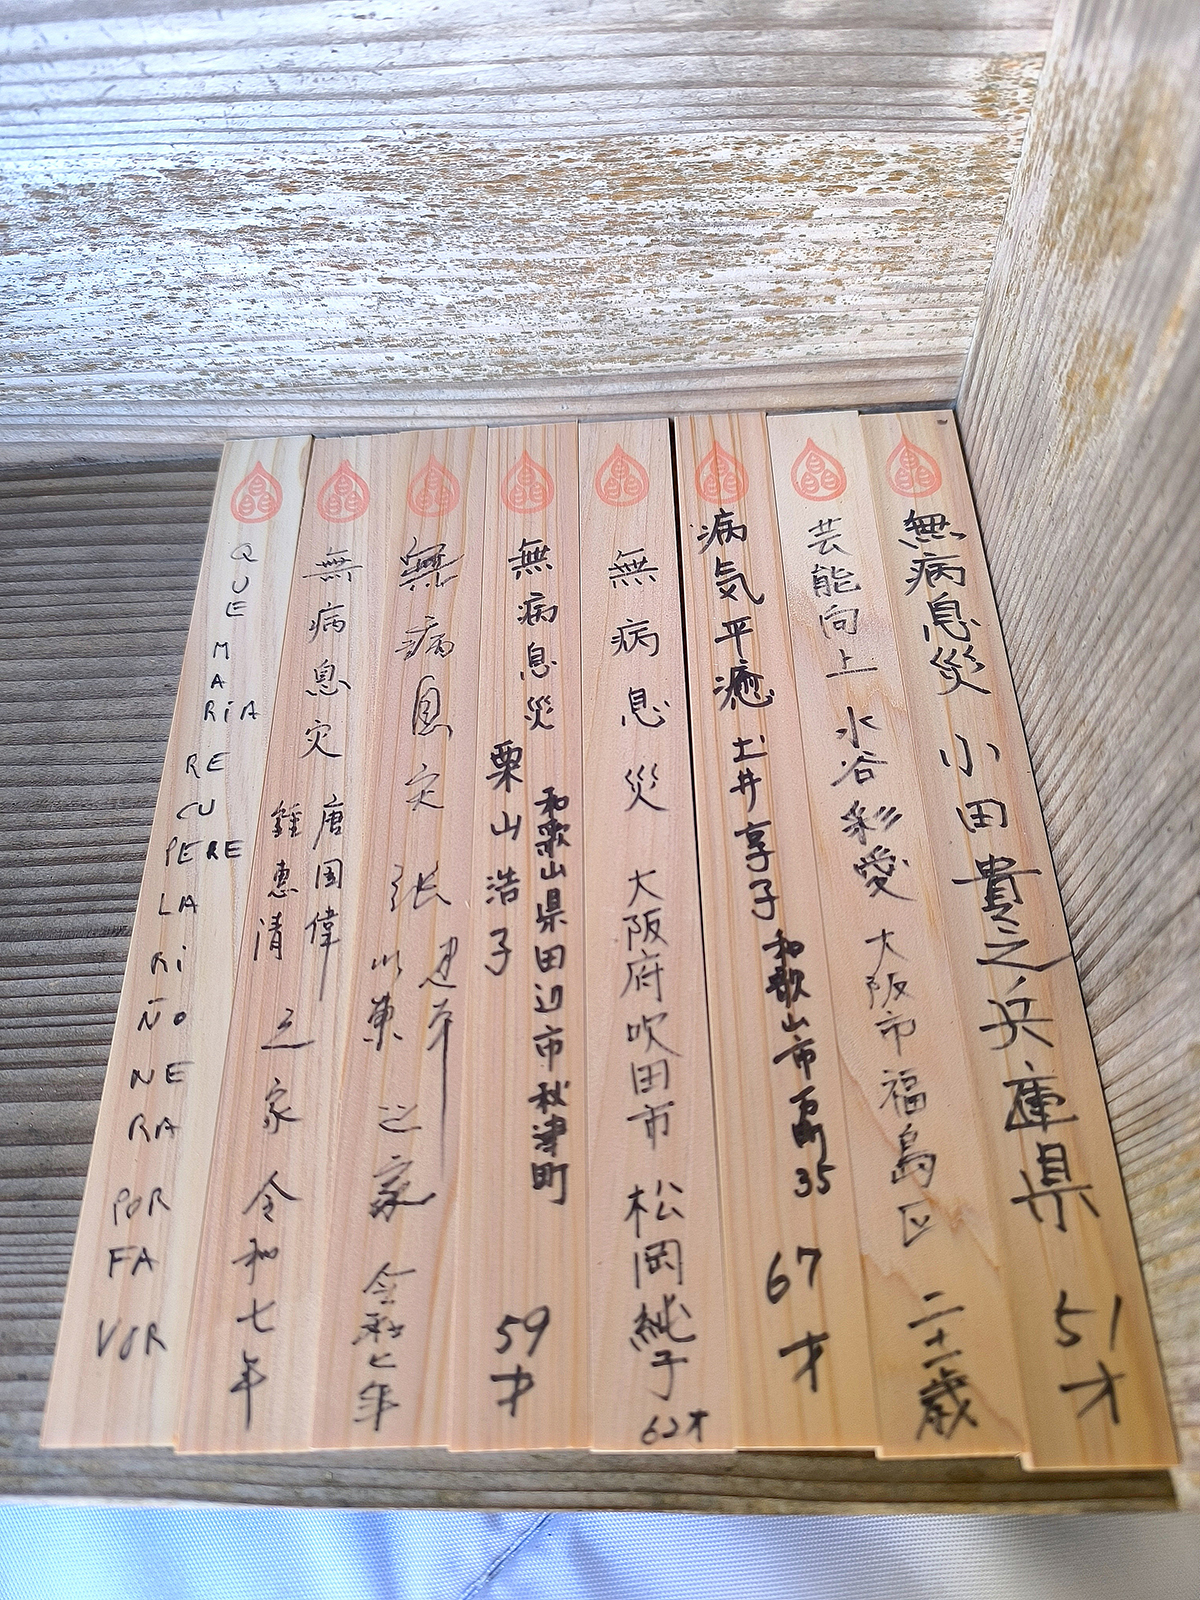 無病息災 小田貴之 兵庫県 51才
芸能向上 水谷彩愛 大阪市福島区 二十一歳
病気平癒 土井享子 和歌山市 35 67才
無病息災 大阪府吹田市 松岡純子 62才
無病息災
和歌山県田辺市秋津町
栗山浩子 59才
無病息灾 张
之家 令和七年
無病息灾 唐国偉
鍾惠清
之家 令和七年
QUE MARIA RECUPERE LA RIÑONERA POR FAVOR